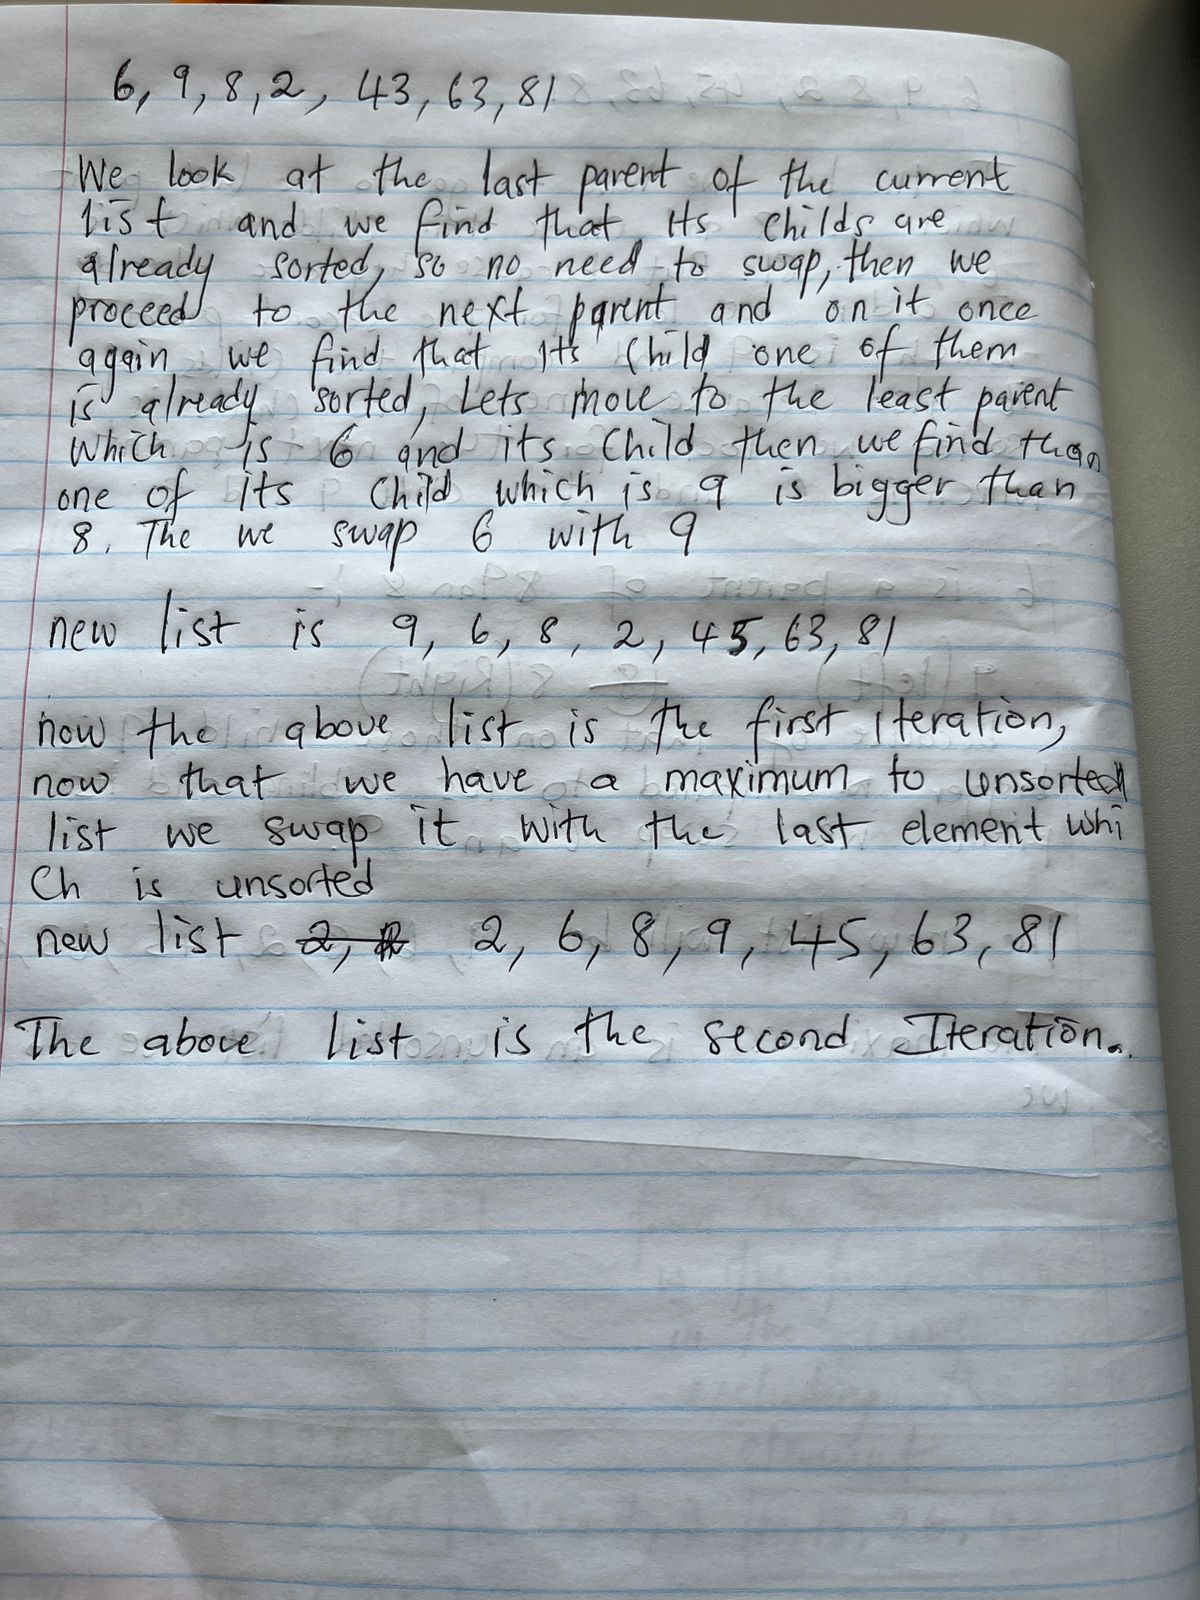 6, 9, 8, 2, 43, 63, 81
We look at the last parent of the current
list and we find that Its Childs are
already sorted, so no need to swap, then we
proceed to the next parent and on it once
again we find that Its Child one of them
is already sorted, Lets move to the least parent
Which is 6 and its Child then we find than
one of its Child which is 9 is bigger than
8. The we swap 6 with 9
new list is 9, 6, 8, 2, 45, 63, 81
now the above list is the first iteration,
now that we have a maximum to unsorted
list we swap it with the last element whi
Ch is unsorted
new list 2, 6, 8, 9, 45, 63, 81
The above list is the second Iteration.